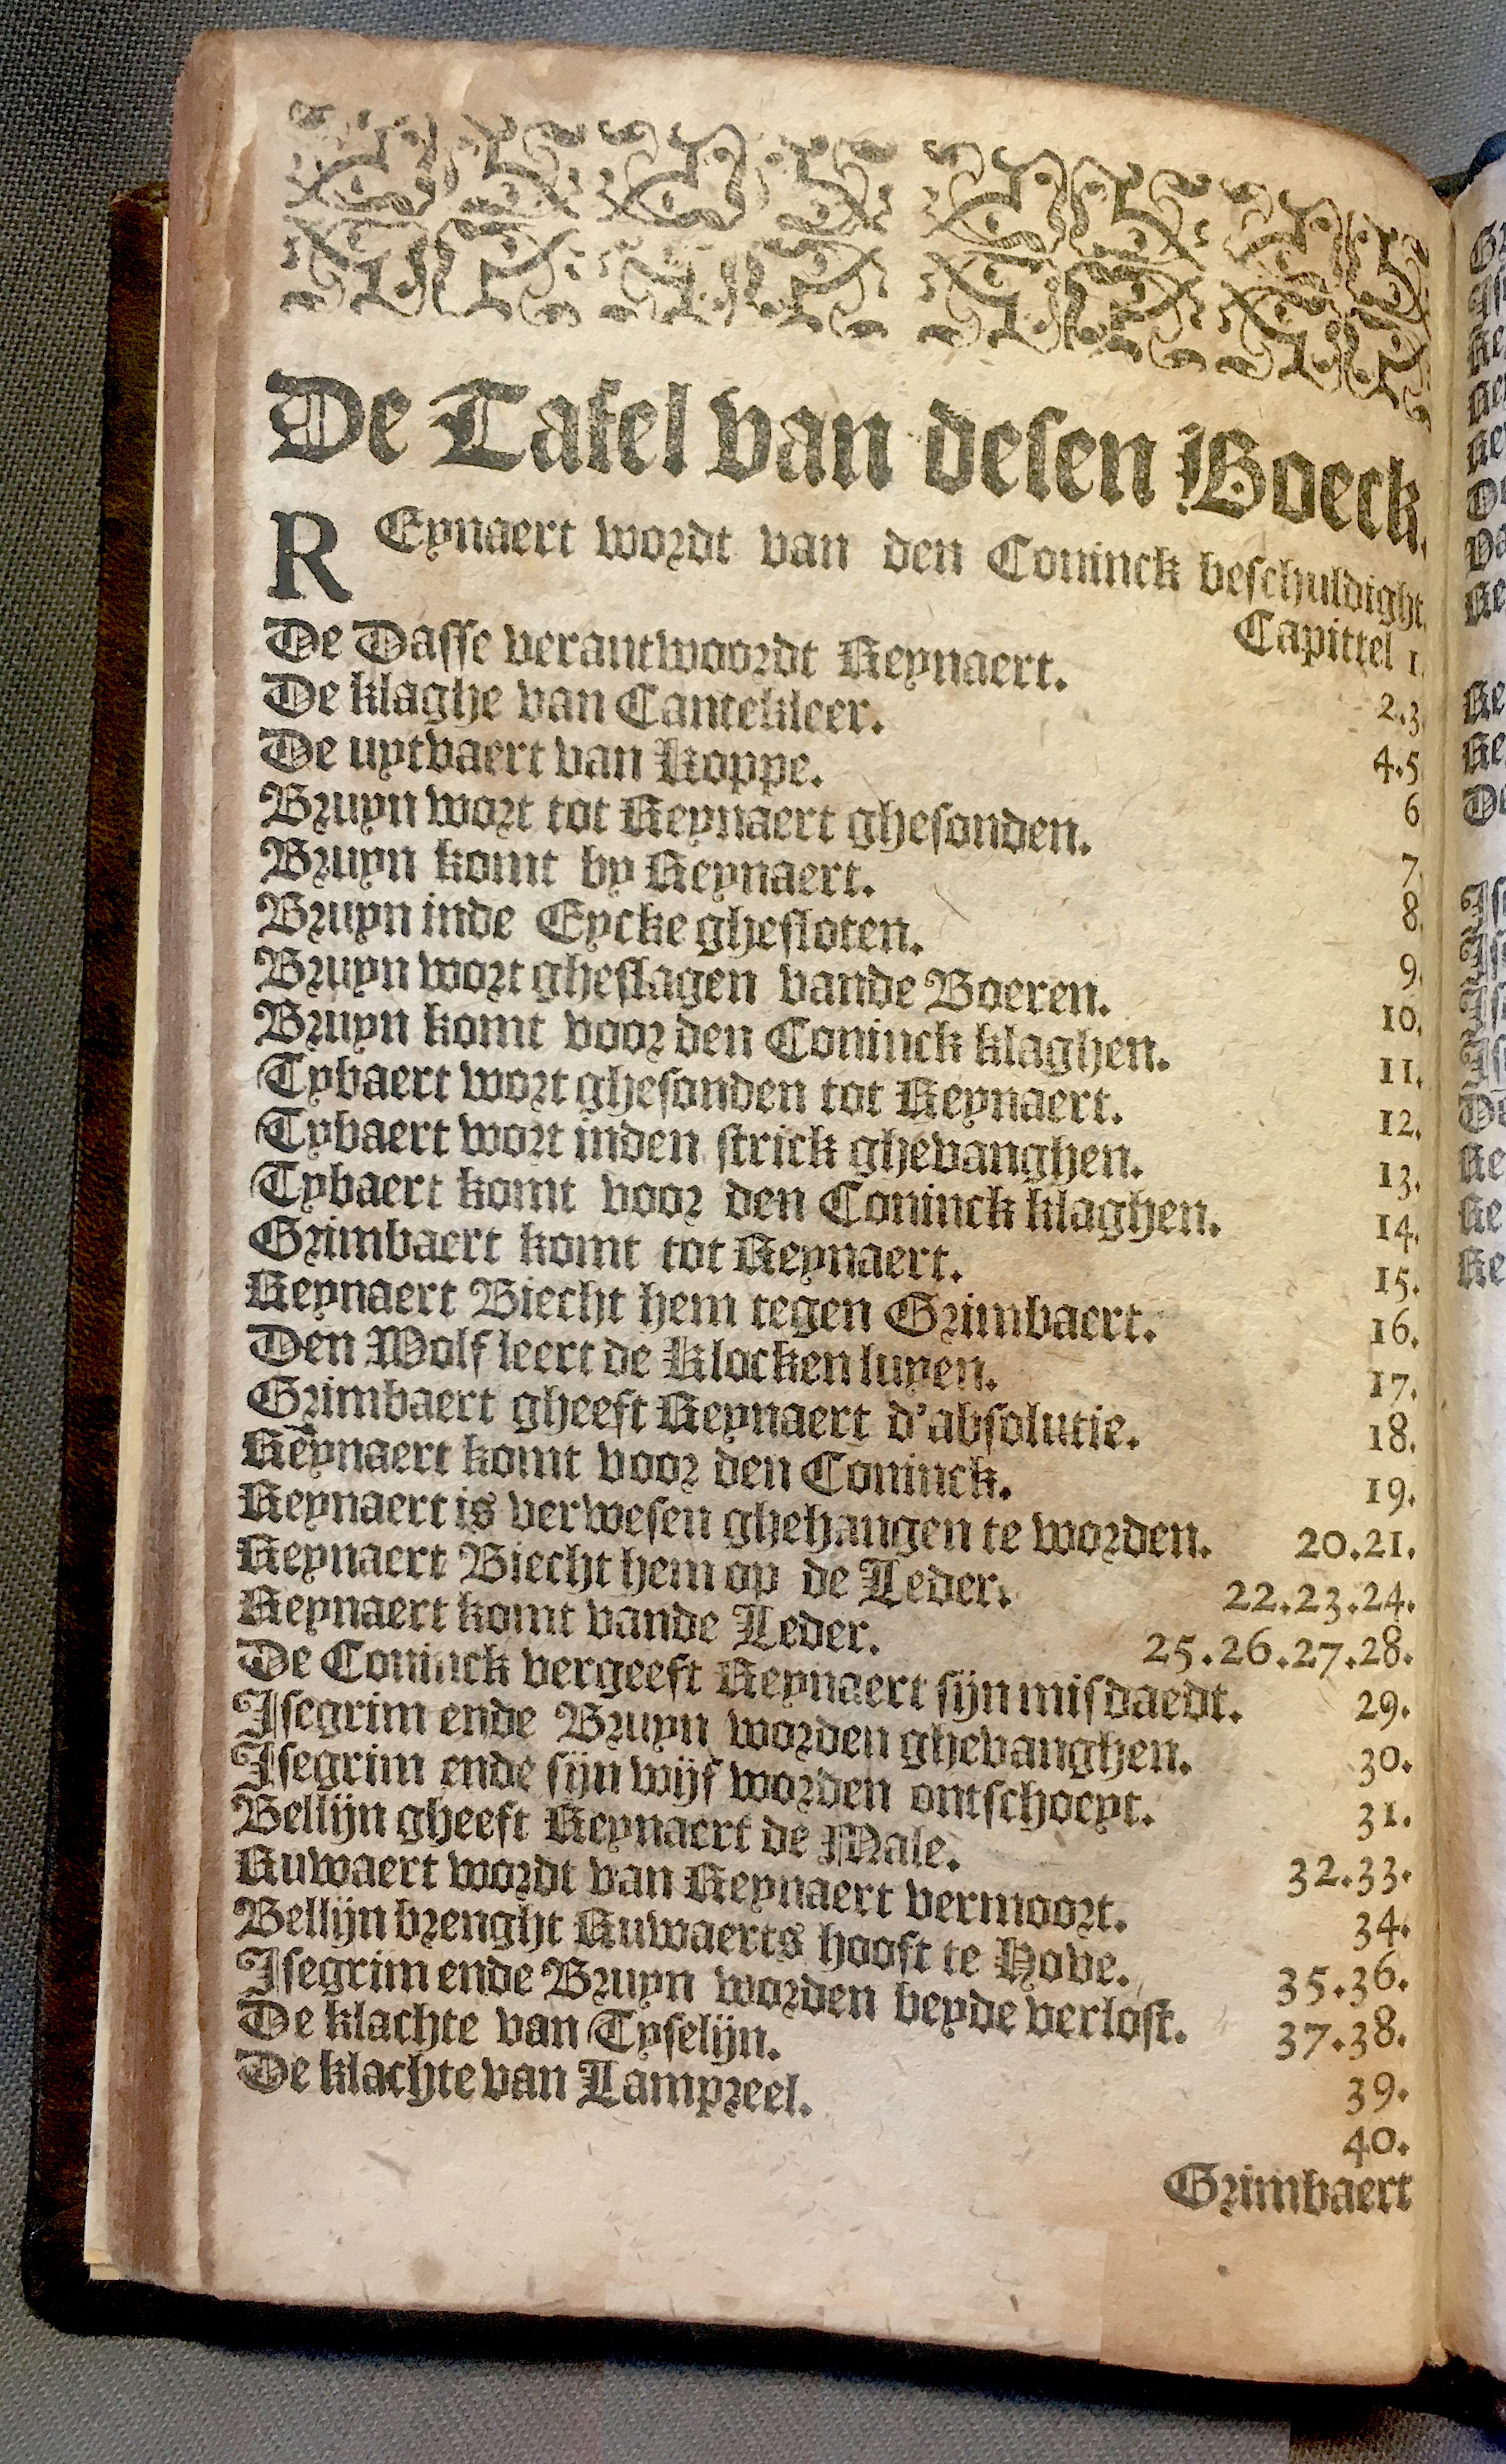 De Tafel van desen Boeck.
REynaert wordt van den Coninck beschuldight,
Capittel 1.
De Dasse verantwoordt Reynaert. 2.3
De klaghe van Cantekleer. 4.5
De uytvaert van Koppe. 6
Bruyn wort tot Reynaert ghesonden. 7.
Bruyn komt by Reynaert. 8.
Bruyn inde Eycke ghesloten. 9.
Bruyn wort gheslagen vande Boeren. 10.
Bruyn komt voor den Coninck klaghen. 11.
Tybaert wort ghesonden tot Reynaert. 12.
Tybaert wort inden strick ghevanghen. 13.
Tybaert komt voor den Coninck klaghen. 14.
Grimbaert komt tot Reynaert. 15.
Reynaert Biecht hem tegen Grimbaert. 16.
Den Wolf leert de Klocken luyen. 17.
Grimbaert gheeft Reynaert d'absolutie. 18.
Reynaert komt voor den Coninck. 19.
Reynaert is verwesen ghehangen te worden. 20.21.
Reynaert Biecht hem op de Leder. 22.23.24.
Reynaert komt vande Leder. 25.26.27.28.
De Coninck vergeeft Reynaert sijn misdaedt. 29.
Isegrim ende Bruyn worden ghevanghen. 30.
Isegrim ende sijn wijf worden ontschoeyt. 31.
Bellijn gheeft Reynaert de Male. 32.33.
Kuwaert wordt van Reynaert vermoort. 34.
Bellijn brenght Kuwaerts hooft te Hove. 35.36.
Isegrim ende Bruyn worden beyde verlost. 37.38.
De klachte van Tyselijn. 39.
De klachte van Lampreel. 40.
Grimbaert